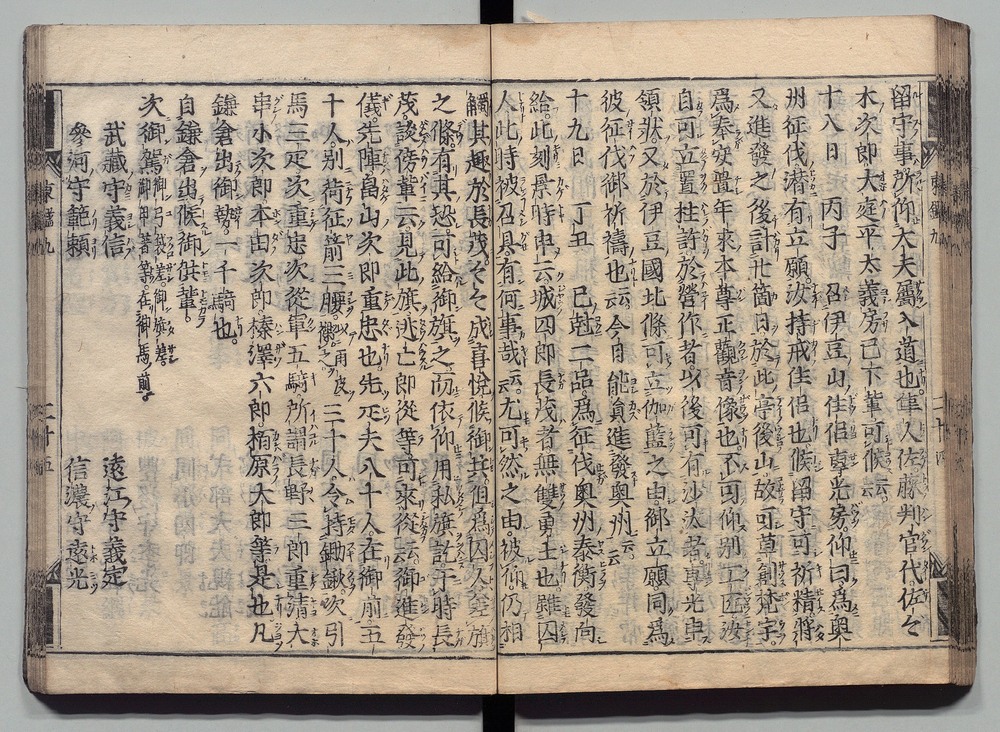 留守事所仰大夫屬入道也隼人佐藤判官代佐々
木次郎大庭平太義房已下輩可候云云
十八日 丙子 召伊豆山住侶專光房仰曰爲奥
州征伐潜有立願汝持戒住侶也候留守可祈精將
又進發之後計廿箇日於此亭後山故可草創梵宇
爲奉安置年來本尊正觀音像也不可仰別工匠汝
自可立置柱許於營作者以後可有沙汰者專光申
領狀又於伊豆國北條可立伽藍之由御立願同爲
彼征伐御祈禱也云云今日能員進發奥州云云
十九日 丁丑 巳尅二品爲征伐奥州泰衡發向
給此刻景時申云城四郎長茂者無雙勇士也雖囚
人此時被召具有何事哉云云尤可然之由被仰仍相
觸其趣於長茂々々成喜悅候御共但爲囚人差旗
之條有其恐可給御旗之而依仰用私旗訖于時長
茂談傍輩云見此旗逃亡郎從等可來從云云御進發
儀先陣畠山次郎重忠也先疋夫八十人在御前五
十人別荷征箭三腰以雨皮裹之三十人令持鋤鍬次引
馬三疋次重忠次從軍五騎所謂長野三郎重淸大
串小次郎本田次郎榛澤六郎栢原太郎等是也凡
鎌倉出御勢一千騎也
自鎌倉出候御供輩
次御駕御弓袋差御旗差御甲著等在御馬前
武藏守義信 遠江守義定
參河守範賴 信濃守遠光
東鑑九 二十四
東鑑九 二十五